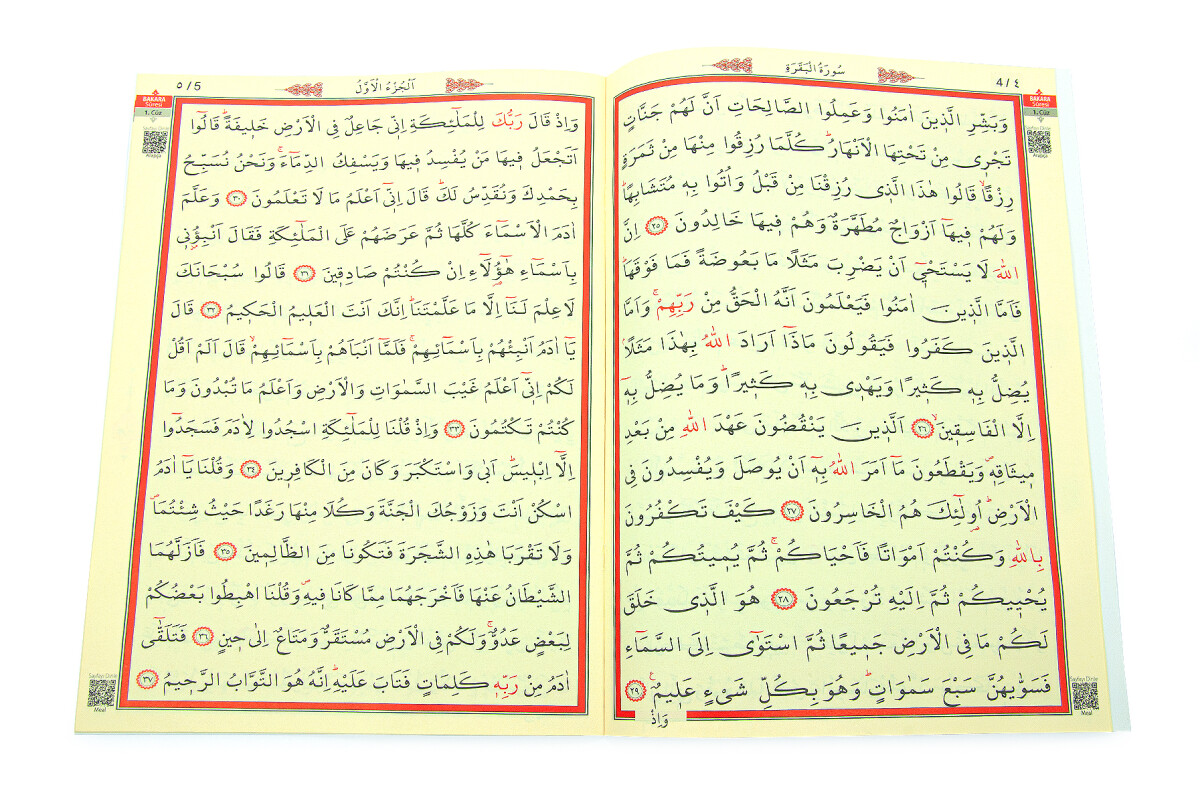 سُورَةُ الْبَقَرَةِ
4/٤
BAKARA
Sûresi
1. Cüz
Sayfayı Dinle
Arapça
وَبَشِّرِ الَّذ۪ينَ اٰمَنُوا وَعَمِلُوا الصَّالِحَاتِ اَنَّ لَهُمْ جَنَّاتٍ
تَجْر۪ي مِنْ تَحْتِهَا الْاَنْهَارُۜ كُلَّمَا رُزِقُوا مِنْهَا مِنْ ثَمَرَةٍ
رِزْقًاۙ قَالُوا هٰذَا الَّذ۪ي رُزِقْنَا مِنْ قَبْلُ وَاُتُوا بِه۪ مُتَشَابِهًاۜ
وَلَهُمْ ف۪يهَٓا اَزْوَاجٌ مُطَهَّرَةٌ وَهُمْ ف۪يهَا خَالِدُونَ ﴿٢٥﴾ اِنَّ
اللّٰهَ لَا يَسْتَحْي۪ٓ اَنْ يَضْرِبَ مَثَلًا مَا بَعُوضَةً فَمَا فَوْقَهَاۜ
فَاَمَّا الَّذ۪ينَ اٰمَنُوا فَيَعْلَمُونَ اَنَّهُ الْحَقُّ مِنْ رَبِّهِمْۚ وَاَمَّا
الَّذ۪ينَ كَفَرُوا فَيَقُولُونَ مَاذَٓا اَرَادَ اللّٰهُ بِهٰذَا مَثَلًاۢ
يُضِلُّ بِه۪ كَث۪يرًا وَيَهْد۪ي بِه۪ كَث۪يرًاۜ وَمَا يُضِلُّ بِه۪ٓ
اِلَّا الْفَاسِق۪ينَۙ ﴿٢٦﴾ اَلَّذ۪ينَ يَنْقُضُونَ عَهْدَ اللّٰهِ مِنْ بَعْدِ
م۪يثَاقِه۪ۖ وَيَقْطَعُونَ مَٓا اَمَرَ اللّٰهُ بِه۪ٓ اَنْ يُوصَلَ وَيُفْسِدُونَ فِي
الْاَرْضِۜ اُو۬لٰٓئِكَ هُمُ الْخَاسِرُونَ ﴿٢٧﴾ كَيْفَ تَكْفُرُونَ
بِاللّٰهِ وَكُنْتُمْ اَمْوَاتًا فَاَحْيَاكُمْۚ ثُمَّ يُم۪يتُكُمْ ثُمَّ
يُحْي۪يكُمْ ثُمَّ اِلَيْهِ تُرْجَعُونَ ﴿٢٨﴾ هُوَ الَّذ۪ي خَلَقَ
لَكُمْ مَا فِي الْاَرْضِ جَم۪يعًا ثُمَّ اسْتَوٰٓى اِلَى السَّمَٓاءِ
فَسَوّٰيهُنَّ سَبْعَ سَمٰوَاتٍۜ وَهُوَ بِكُلِّ شَيْءٍ عَل۪يمٌ۟ ﴿٢٩﴾
وَاِذْ
Sayfayı Dinle
Meal
اَلْجُزْءُ الْاَوَّلُ
٥/5
BAKARA
Sûresi
1. Cüz
Sayfayı Dinle
Arapça
وَاِذْ قَالَ رَبُّكَ لِلْمَلٰٓئِكَةِ اِنّ۪ي جَاعِلٌ فِي الْاَرْضِ خَل۪يفَةًۜ قَالُٓوا
اَتَجْعَلُ ف۪يهَا مَنْ يُفْسِدُ ف۪يهَا وَيَسْفِكُ الدِّمَٓاءَۚ وَنَحْنُ نُسَبِّحُ
بِحَمْدِكَ وَنُقَدِّسُ لَكَۜ قَالَ اِنّ۪ٓي اَعْلَمُ مَا لَا تَعْلَمُونَ ﴿٣٠﴾ وَعَلَّمَ
اٰدَمَ الْاَسْمَٓاءَ كُلَّهَا ثُمَّ عَرَضَهُمْ عَلَى الْمَلٰٓئِكَةِ فَقَالَ اَنْبِؤُ۫ن۪ي
بِاَسْمَٓاءِ هٰٓؤُ۬لَٓاءِ اِنْ كُنْتُمْ صَادِق۪ينَ ﴿٣١﴾ قَالُوا سُبْحَانَكَ
لَا عِلْمَ لَنَٓا اِلَّا مَا عَلَّمْتَنَاۜ اِنَّكَ اَنْتَ الْعَل۪يمُ الْحَك۪يمُ ﴿٣٢﴾ قَالَ
يَٓا اٰدَمُ اَنْبِئْهُمْ بِاَسْمَٓائِهِمْۚ فَلَمَّٓا اَنْبَاَهُمْ بِاَسْمَٓائِهِمْۙ قَالَ اَلَمْ اَقُلْ
لَكُمْ اِنّ۪ٓي اَعْلَمُ غَيْبَ السَّمٰوَاتِ وَالْاَرْضِ وَاَعْلَمُ مَا تُبْدُونَ وَمَا
كُنْتُمْ تَكْتُمُونَ ﴿٣٣﴾ وَاِذْ قُلْنَا لِلْمَلٰٓئِكَةِ اسْجُدُوا لِاٰدَمَ فَسَجَدُٓوا
اِلَّٓا اِبْل۪يسَۜ اَبٰى وَاسْتَكْبَرَ وَكَانَ مِنَ الْكَافِر۪ينَ ﴿٣٤﴾ وَقُلْنَا يَٓا اٰدَمُ
اسْكُنْ اَنْتَ وَزَوْجُكَ الْجَنَّةَ وَكُلَا مِنْهَا رَغَدًا حَيْثُ شِئْتُمَاۖ
وَلَا تَقْرَبَا هٰذِهِ الشَّجَرَةَ فَتَكُونَا مِنَ الظَّالِم۪ينَ ﴿٣٥﴾ فَاَزَلَّهُمَا
الشَّيْطَانُ عَنْهَا فَاَخْرَجَهُمَا مِمَّا كَانَا ف۪يهِۖ وَقُلْنَا اهْبِطُوا بَعْضُكُمْ
لِبَعْضٍ عَدُوٌّۚ وَلَكُمْ فِي الْاَرْضِ مُسْتَقَرٌّ وَمَتَاعٌ اِلٰى ح۪ينٍ ﴿٣٦﴾ فَتَلَقّٰٓى
اٰدَمُ مِنْ رَبِّه۪ كَلِمَاتٍ فَتَابَ عَلَيْهِۜ اِنَّهُ هُوَ التَّوَّابُ الرَّح۪يمُ ﴿٣٧﴾
Sayfayı Dinle
Meal